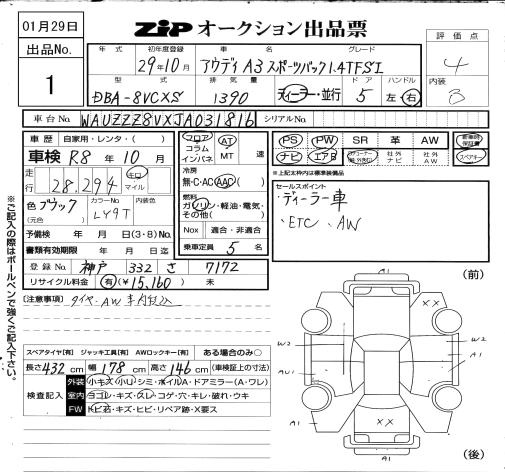 01月29日
ZiP オークション出品票
出品No.
1
評価点
4
内装
B
年式 初年度登録 車名 グレード
29年10月 アウディ A3 スポーツバック 1.4TFSI
型式 排気量 ドア ハンドル
DBA-8VCXS 1390 ディーラー・並行 5 左・右
車台No. WAUZZZ8VXJA031816 シリアルNo.
車歴 自家用・レンタ・( )
車検 R8年 10月
走行 28,294 キロ マイル
色 ブラック (元色) カラーNo. LY9T 内装色
予備検 年 月 日(3・8)No.
書類有効期限 年 月 日迄
登録No. 神戸 332 さ 7172
リサイクル料金 有(¥15,160) 未
フロア コラム インパネ
AT MT 速
冷房 無・C・AC・AAC( )
燃料 ガソリン・軽油・電気・その他( )
Nox 適合・非適合
乗車定員 5 名
PS PW SR 革 AW
ナビ エアB 社外ナビ 社外AW
新車時保証書
スペアキー
※上記太枠内は標準装備品
セールスポイント
・ディーラー車
・ETC 、AW
[注意事項] タイヤ・AW 車内積込
※ご記入の際はボールペンで強くご記入下さい。
スペアタイヤ[有] ジャッキ工具[有] AWロックキー[有] ある場合のみ○
長さ432cm 幅178cm 高さ146cm (車検証上の寸法)
検査記入
外装 小キズ・小U・シミ・ホイルA・ドアミラー(A・ワレ)
室内 ヨゴレ・キズ・スレ・コゲ・穴・キレ・破れ・ウキ
FW トビ石・キズ・ヒビ・リペア跡・X要ス
(前)
A1
XX
W2
W2
A1
AU1
XX
A1
A1
(後)